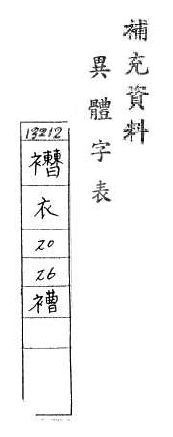 補充資料
異體字表
13212
衣
20
26
褿